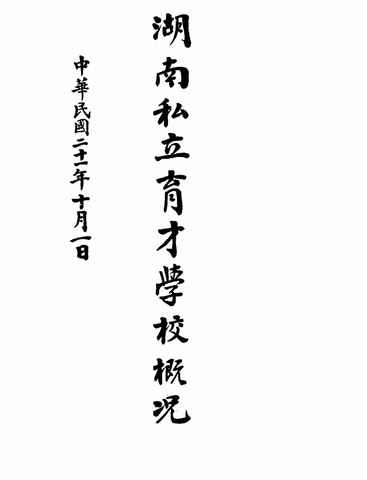 湖南私立育才學校概況
中華民國二十一年十月一日